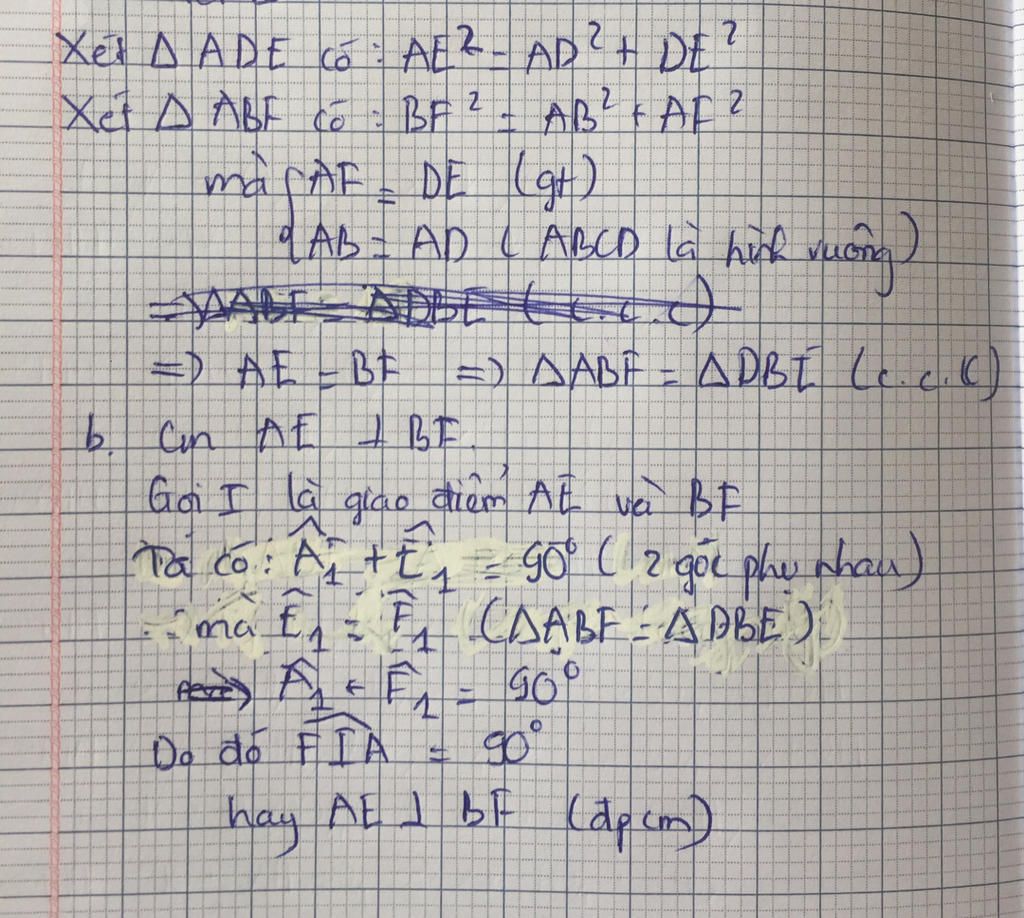 Xét Δ ADE có : AE² = AD² + DE²
Xét Δ ABF có : BF² = AB² + AF²
mà { AF = DE (gt)
AB = AD ( ABCD là hình vuông)
=> ΔABF = ΔDBE ( c.c.c)
=> AE = BF => ΔABF = ΔDBE (c.c.c)
b. Cm AE ⊥ BF.
Gọi I là giao điểm AE và BF
Ta có : Â₁ + Ê₁ = 90° ( 2 góc phụ nhau)
mà Ê₁ = F̂₁ (ΔABF = ΔDBE)
=> Â₁ + F̂₁ = 90°
Do đó F̂IA = 90°
hay AE ⊥ BF (đpcm)